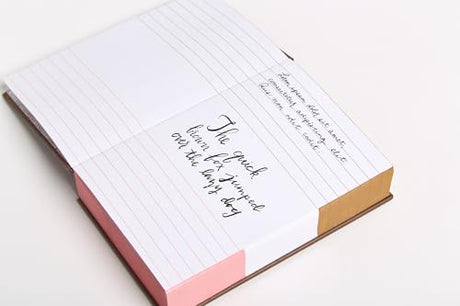 The quick
brown fox jumped
over the lazy dog
Lorem ipsum dolor sit amet,
consectetur adipiscing elit